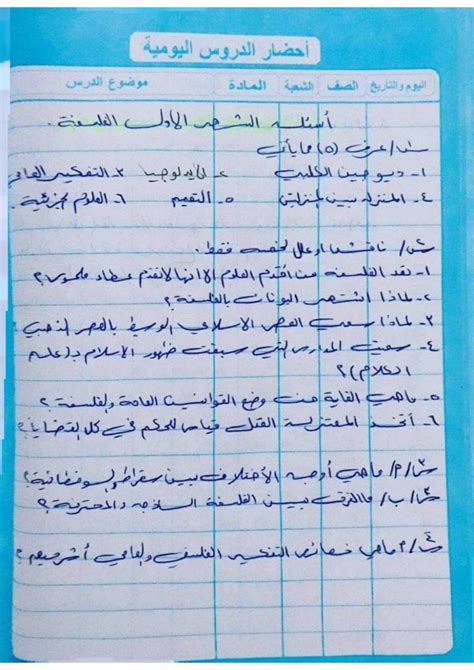 أحضار الدروس اليومية
اليوم والتاريخ الصف الشعبة المادة موضوع الدرس
أسئلة الشهر الاول الفلسفة.
س١/ عرف (٥) مما يأتي
١- ديوجين الكلبي ٢- الايدلوجيا ٣- التفكير العلمي
٤- المنزلة بين المنزلتين ٥- التقييم ٦- العلوم الجزئية.
س٢/ ناقش او علل لخمسة فقط.
١- تعد الفلسفة من اقدم العلوم الا انها لا تقدم عطاء ملموس؟
٢- لماذا اشتهر اليونان بالفلسفة؟
٣- لماذا سمي العصر الاسلامي الوسيط بالعصر الذهبي؟
٤- سميت المدارس التي سبقت ظهور الاسلام بـ (علم
الكلام)؟
٥- ماهي الغاية من وضع القوانين العامة والفلسفة؟
٦- أتخذ المعتزلة العقل قياس للحكم في كل القضايا؟
س٣/ أ/ ماهي أوجه الأختلاف بين سقراط والسوفسطائية؟
س٣/ ب/ ما الفرق بين الفلسفة الساذجة والمحترفة؟
س٤/ أ ماهي خصائص التفكير الفلسفي والعلمي